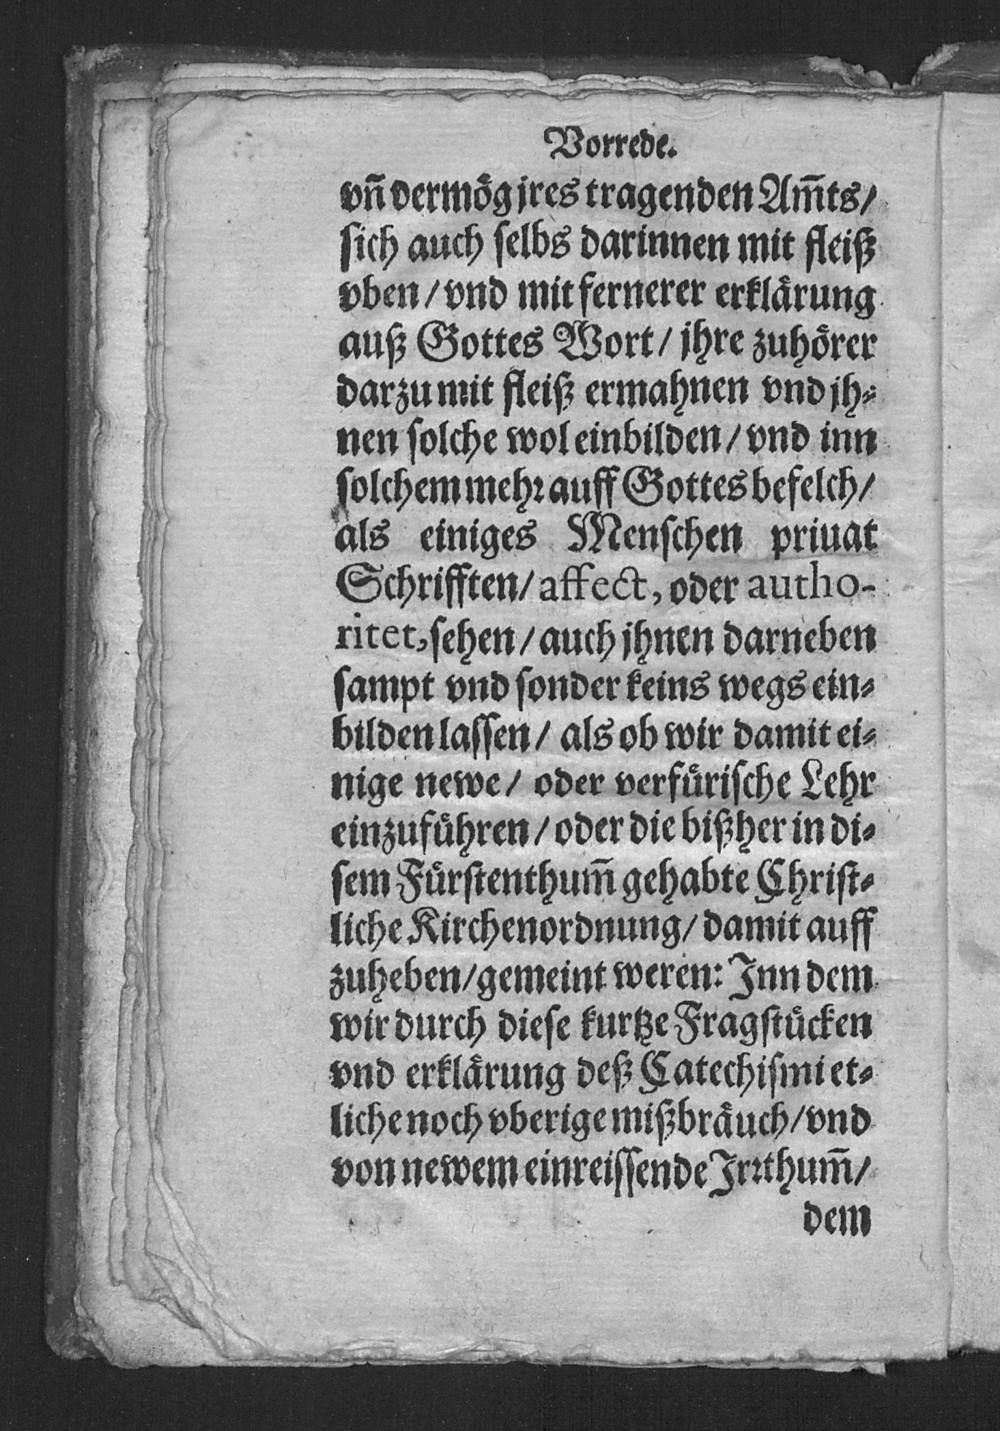 Vorrede.
vn̄ vermög jres tragenden Am̄ts/
sich auch selbs darinnen mit fleiß
vben / vnd mit fernerer erklärung
auß Gottes Wort / jhre zuhörer
darzu mit fleiß ermahnen vnd jh⸗
nen solche wol einbilden / vnd inn
solchem mehr auff Gottes befelch/
als einiges Menschen priuat
Schrifften/ affect, oder autho-
ritet, sehen / auch jhnen darneben
sampt vnd sonder keins wegs ein⸗
bilden lassen / als ob wir damit ei⸗
nige newe / oder verfürische Lehr
einzuführen / oder die bißher in di⸗
sem Fürstenthum̄ gehabte Christ⸗
liche Kirchenordnung/ damit auff
zuheben/gemeint weren: Inn dem
wir durch diese kurtze Fragstücken
vnd erklärung deß Catechismi et⸗
liche noch vberige mißbräuch/vnd
von newem einreissende Irrthum̄/
dem